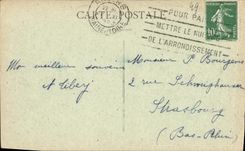 CARTE POSTALE
POUR PA
METTRE LE NU
DE L'ARRONDISSEMENT
10
Mon meilleur souvenir
Monsieur P Bourgeois
2 rue Schweighaeuser
Strasbourg
(Bas-Rhin)